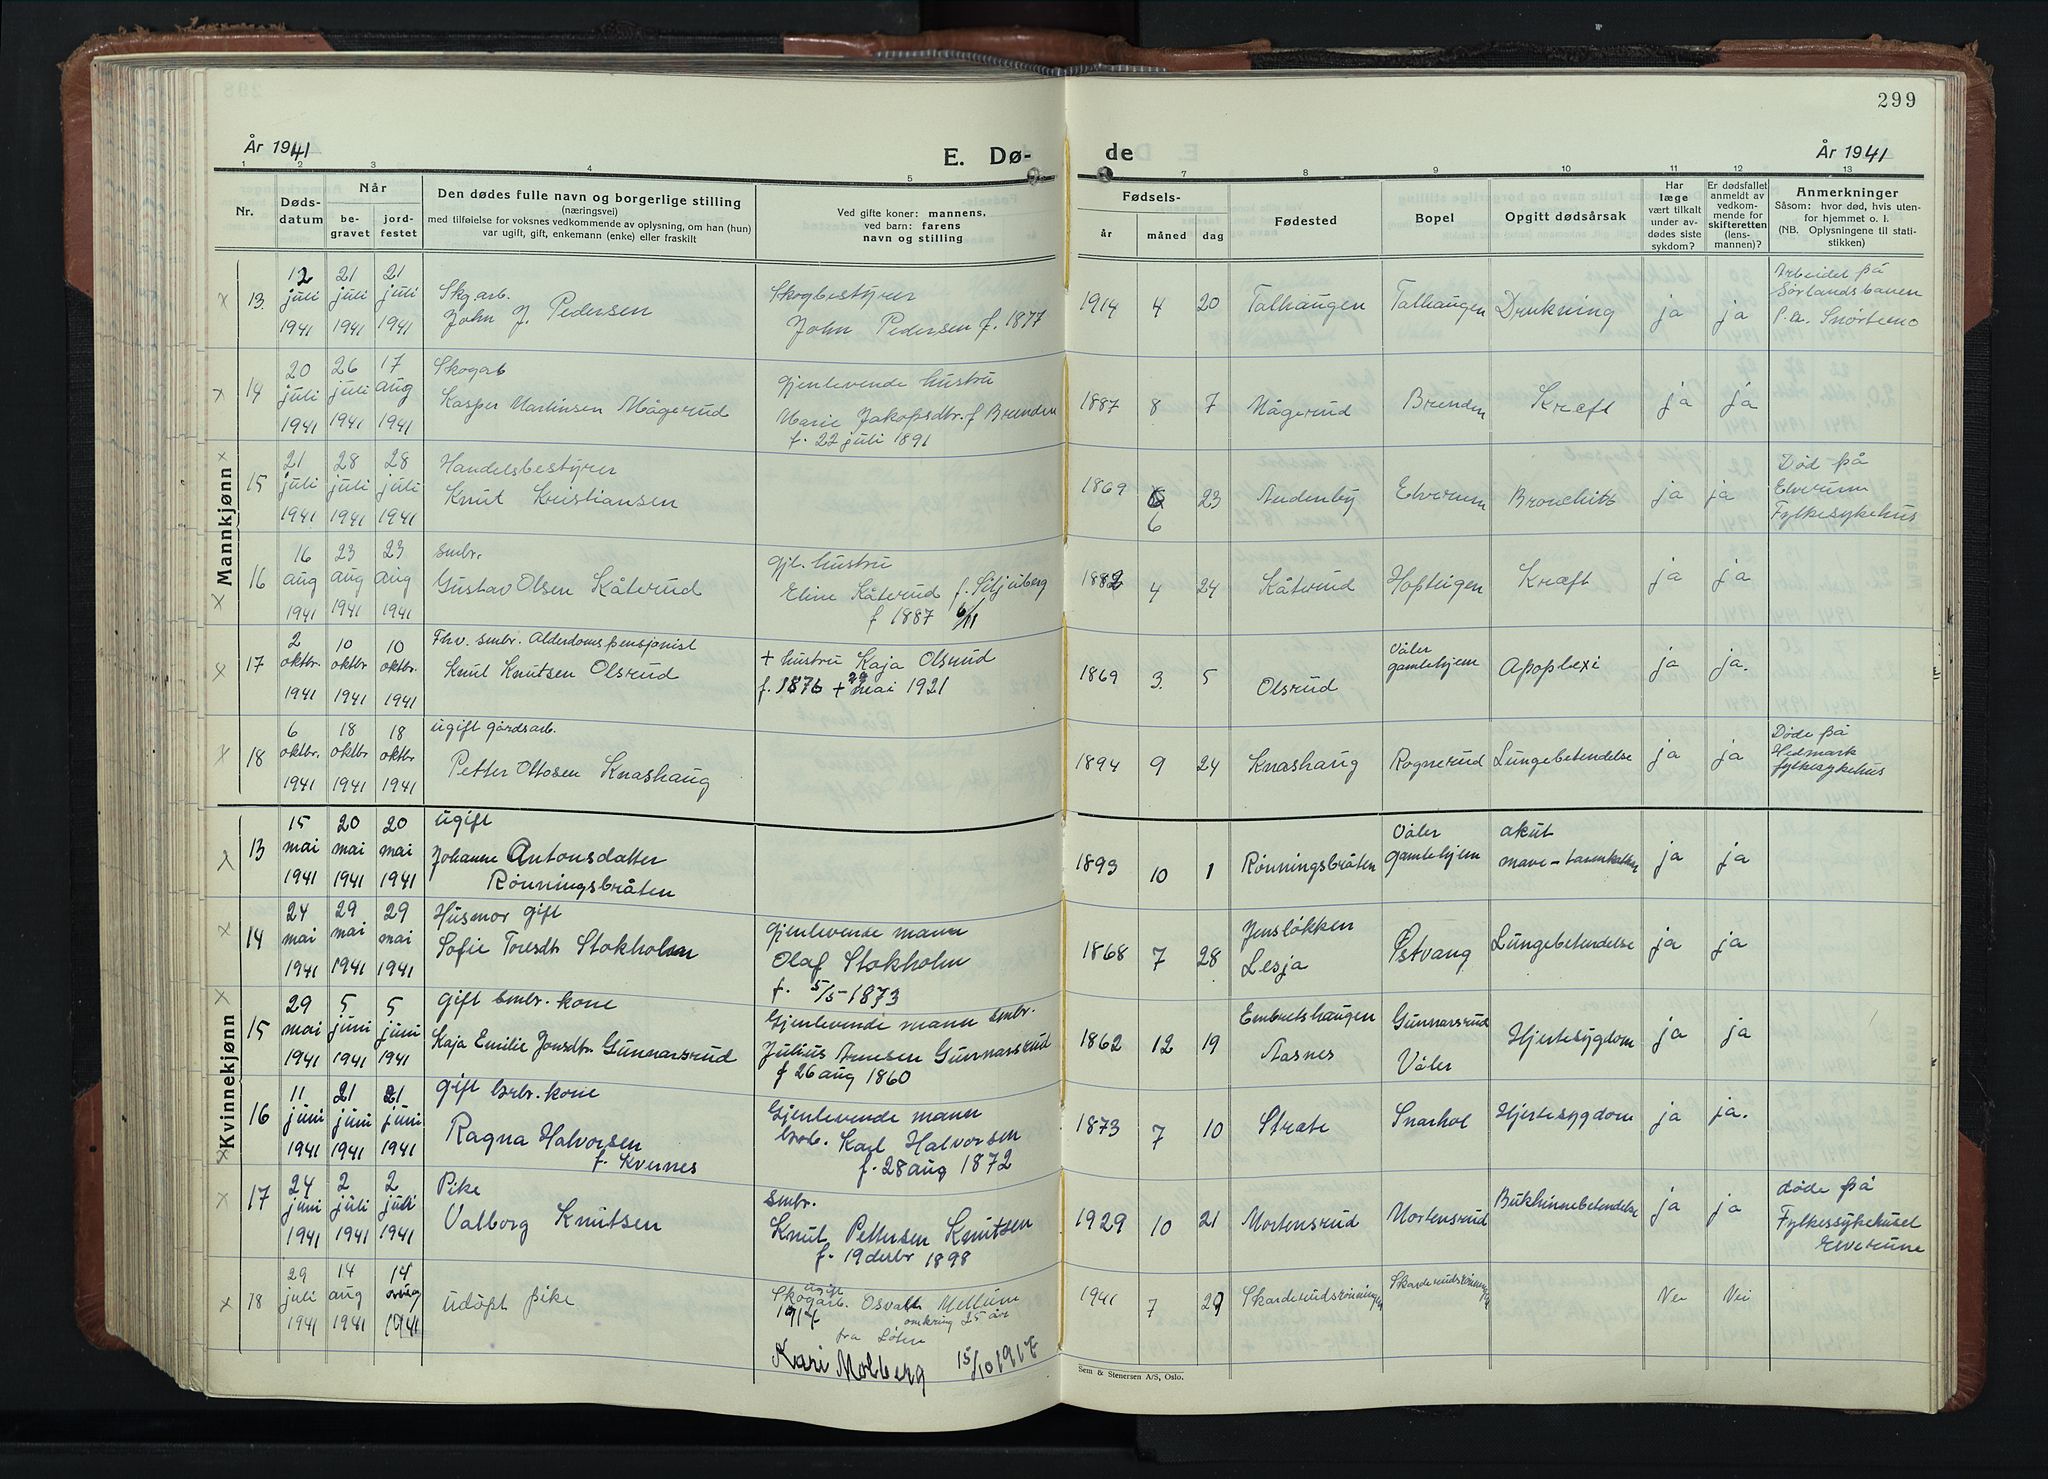 299
År 1941
E. Dø-
de
År 1941
1 2 3 4 5 7 8 9 10 11 12 13
Nr.
Døds-
datum
Når
be-
gravet
jord-
festet
Den dødes fulle navn og borgerlige stilling
(næringsvei)
med tilføielse for voksnes vedkommende av oplysning, om han (hun)
var ugift, gift, enkemann (enke) eller fraskilt
Ved gifte koner: mannens,
ved barn: farens
navn og stilling
Fødsels-
år måned dag
Fødested
Bopel
Opgitt dødsårsak
Har
læge
vært tilkalt
under av-
dødes siste
sykdom?
Er dødsfallet
anmeldt av
vedkom-
mende for
skifteretten
(lens-
mannen)?
Anmerkninger
Såsom: hvor død, hvis uten-
for hjemmet o. l.
(NB. Oplysningene til stati-
stikken)
Mannkjønn
x 13. 12 juli 1941 21 juli 1941 21 juli 1941
Skgarb.
John J. Pedersen
Skogbestyrer
John Pedersen f. 1877
1914 4 20 Talhaugen Talhaugen Drukning ja ja
Arbeidet på
Sørlandsbanen
x 14 20 juli 1941 26 juli 1941 17 aug 1941
Skogarb
Kasper Martinsen Mågerud
Gjenlevende hustru
Marie Jakopsdtr. f Brenden
f. 22 juli 1891
1887 8 7 Mågerud Brenden Kræft ja ja
x 15 21 juli 1941 28 juli 1941 28 juli 1941
Handelsbestyrer
Knut Kristiansen
1869 6 23 Audenby Elverum Bronchitt ja ja
Død på
Elverum
Fylkesykehus
x 16 16 aug 1941 23 aug 1941 23 aug 1941
smbr.
Gustav Olsen Kåterud
Gjl. hustru
Eline Kåterud f. Siljuberg
f 1887 6/11
1882 4 24 Kåterud Hoptingen Kræft ja ja
x 17 2 oktbr. 1941 10 oktbr 1941 10 oktbr. 1941
Fhv. smbr. Alderdomspensjonist
Knut Knutsen Olsrud
+ hustru Kaja Olsrud
f. 1876 + 29 mai 1921
1869 3. 5 Olsrud Våler gamlehjem Apoplexi ja ja.
x 18 6 oktbr. 1941 18 oktbr 1941 18 oktbr 1941
ugift gårdsarb.
Petter Ottosen Knashaug
1894 9 24 Knashaug Rognerud Lungebetendelse ja ja
Døde på
Hedmark
fylkesykehus
Kvinnekjønn
x 13 15 mai 1941 20 mai 1941 20 mai 1941
ugift
Johanne Antonsdatter
Rønningsbråten
1893 10 1 Rønningsbråten Våler gamlehjem akut
ja ja
x 14 24 mai 1941 29 mai 1941 29 mai 1941
Husmor gift
Sofie Toresdt. Stokholm
Gjenlevende mann
Olaf Stokholm
f. 5/5-1873
1868 7 28 Jensløkken Lesja Østvang Lungebetendelse ja ja
x 15 29 mai 1941 5 juni 1941 5 juni 1941
gift smbr. kone
Kaja Emilie Jonsdtr Gunnarsrud
Gjenlevende mann smbr.
Julius Arnesen Gunnarsrud
f 26 aug 1860
1862 12 19 Embretshaugen Aasnes Gunnarsrud Våler Hjertesygdom ja ja
x 16 11 juni 1941 21 juni 1941 21 juni 1941
gift brbr. kone
Ragna Halvorsen
f. Kvernes
Gjenlevende mann
brbr. Karl Halvorsen
f. 28 aug 1872
1873 7 10 Strate Snarhol Hjertesygdom ja ja.
x 17 24 juni 1941 2 juli 1941 2 juli 1941
Pike
Valborg Knutsen
Smbr.
Knut Pettersen Knutsen
f. 19 decbr 1898
1929 10 21 Mortensrud Mortensrud Bukhinnebetendelse ja ja
døde på
Fylkessykehuset
x 18 29 juli 1941 14 aug 1941 14 aug 1941
udøpt pike
ugift
Skogarb. Osvald Mellum
1917 omkring 25 år
fra Løten
Kari Molberg 15/10 1917
1941 7 29 Skarderudsrønningen Skarderudsrønningen Nei Nei
Sem & Stenersen A/S, Oslo.